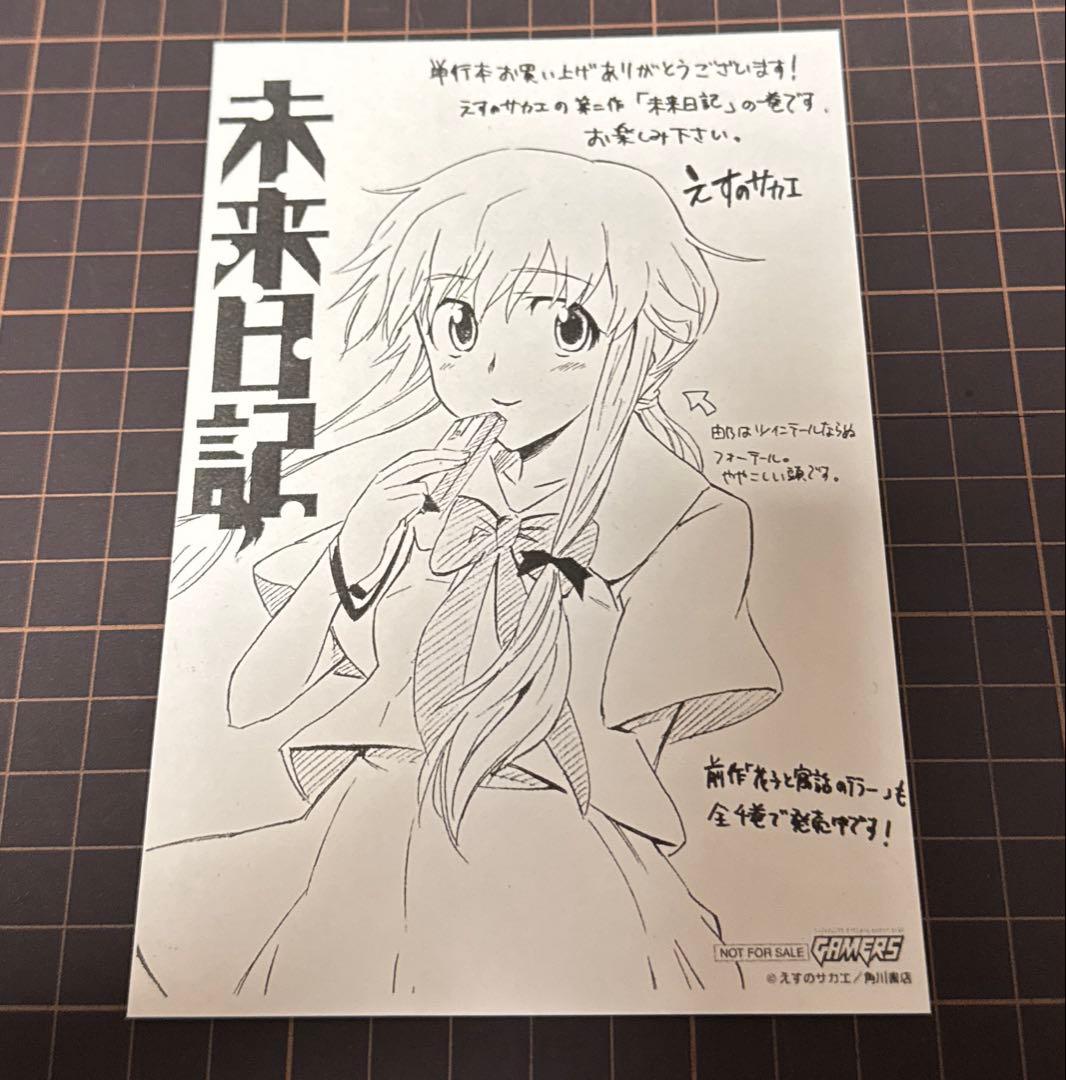 未来日記
単行本お買い上げありがとうございます!
えすのサカエの第二作「未来日記」の一巻です.
お楽しみ下さい。
えすのサカエ
由乃はツインテールならぬ
フォーテール。
ややこしい頭です。
前作「花子と寓話のテラー」も
全4巻で発売中です!
NOT FOR SALE
GAMERS
©えすのサカエ/角川書店